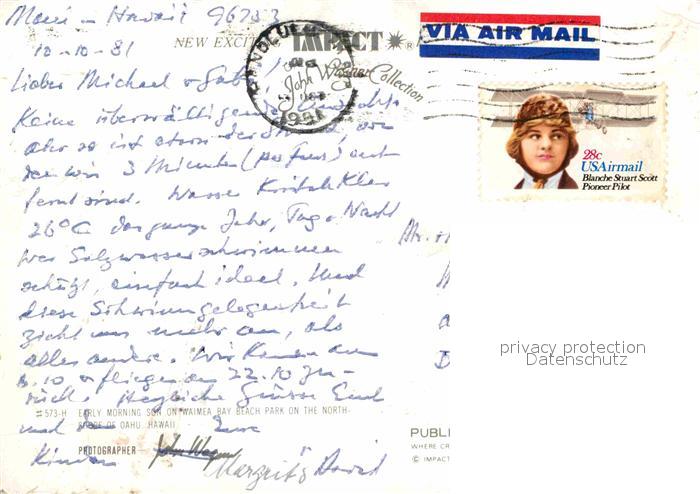 Maui – Hawaii 96753
10-10-81
NEW EXCIT IMPACT ®
VIA AIR MAIL
John Wagner Collection
1981
Lieber Michael + Gabi,
Keine überwältigende
aber so ist etwa der
den wir 3 Minuten (per Fuss) ent
fernt sind. Wasser Kristallklar
26°C das ganze Jahr, Tag + Nacht
Wer Salzwasserschwimmen
schätzt, einfach ideal. Und
diese Schwimmgelegenheit
zieht uns mehr an, als
alles andere. Wir kamen am
8.10 + fliegen am 22.10 zu-
rück. Herzliche Grüsse Euch
#573-H EARLY MORNING SUN ON WAIMEA BAY BEACH PARK ON THE NORTH-
und den Eure
SHORE OF OAHU, HAWAII
PHOTOGRAPHER John Wagner
Kindern Margrit & David
28c
USAirmail
Blanche Stuart Scott
Pioneer Pilot
privacy protection
Datenschutz
PUBLI
WHERE CR
© IMPACT